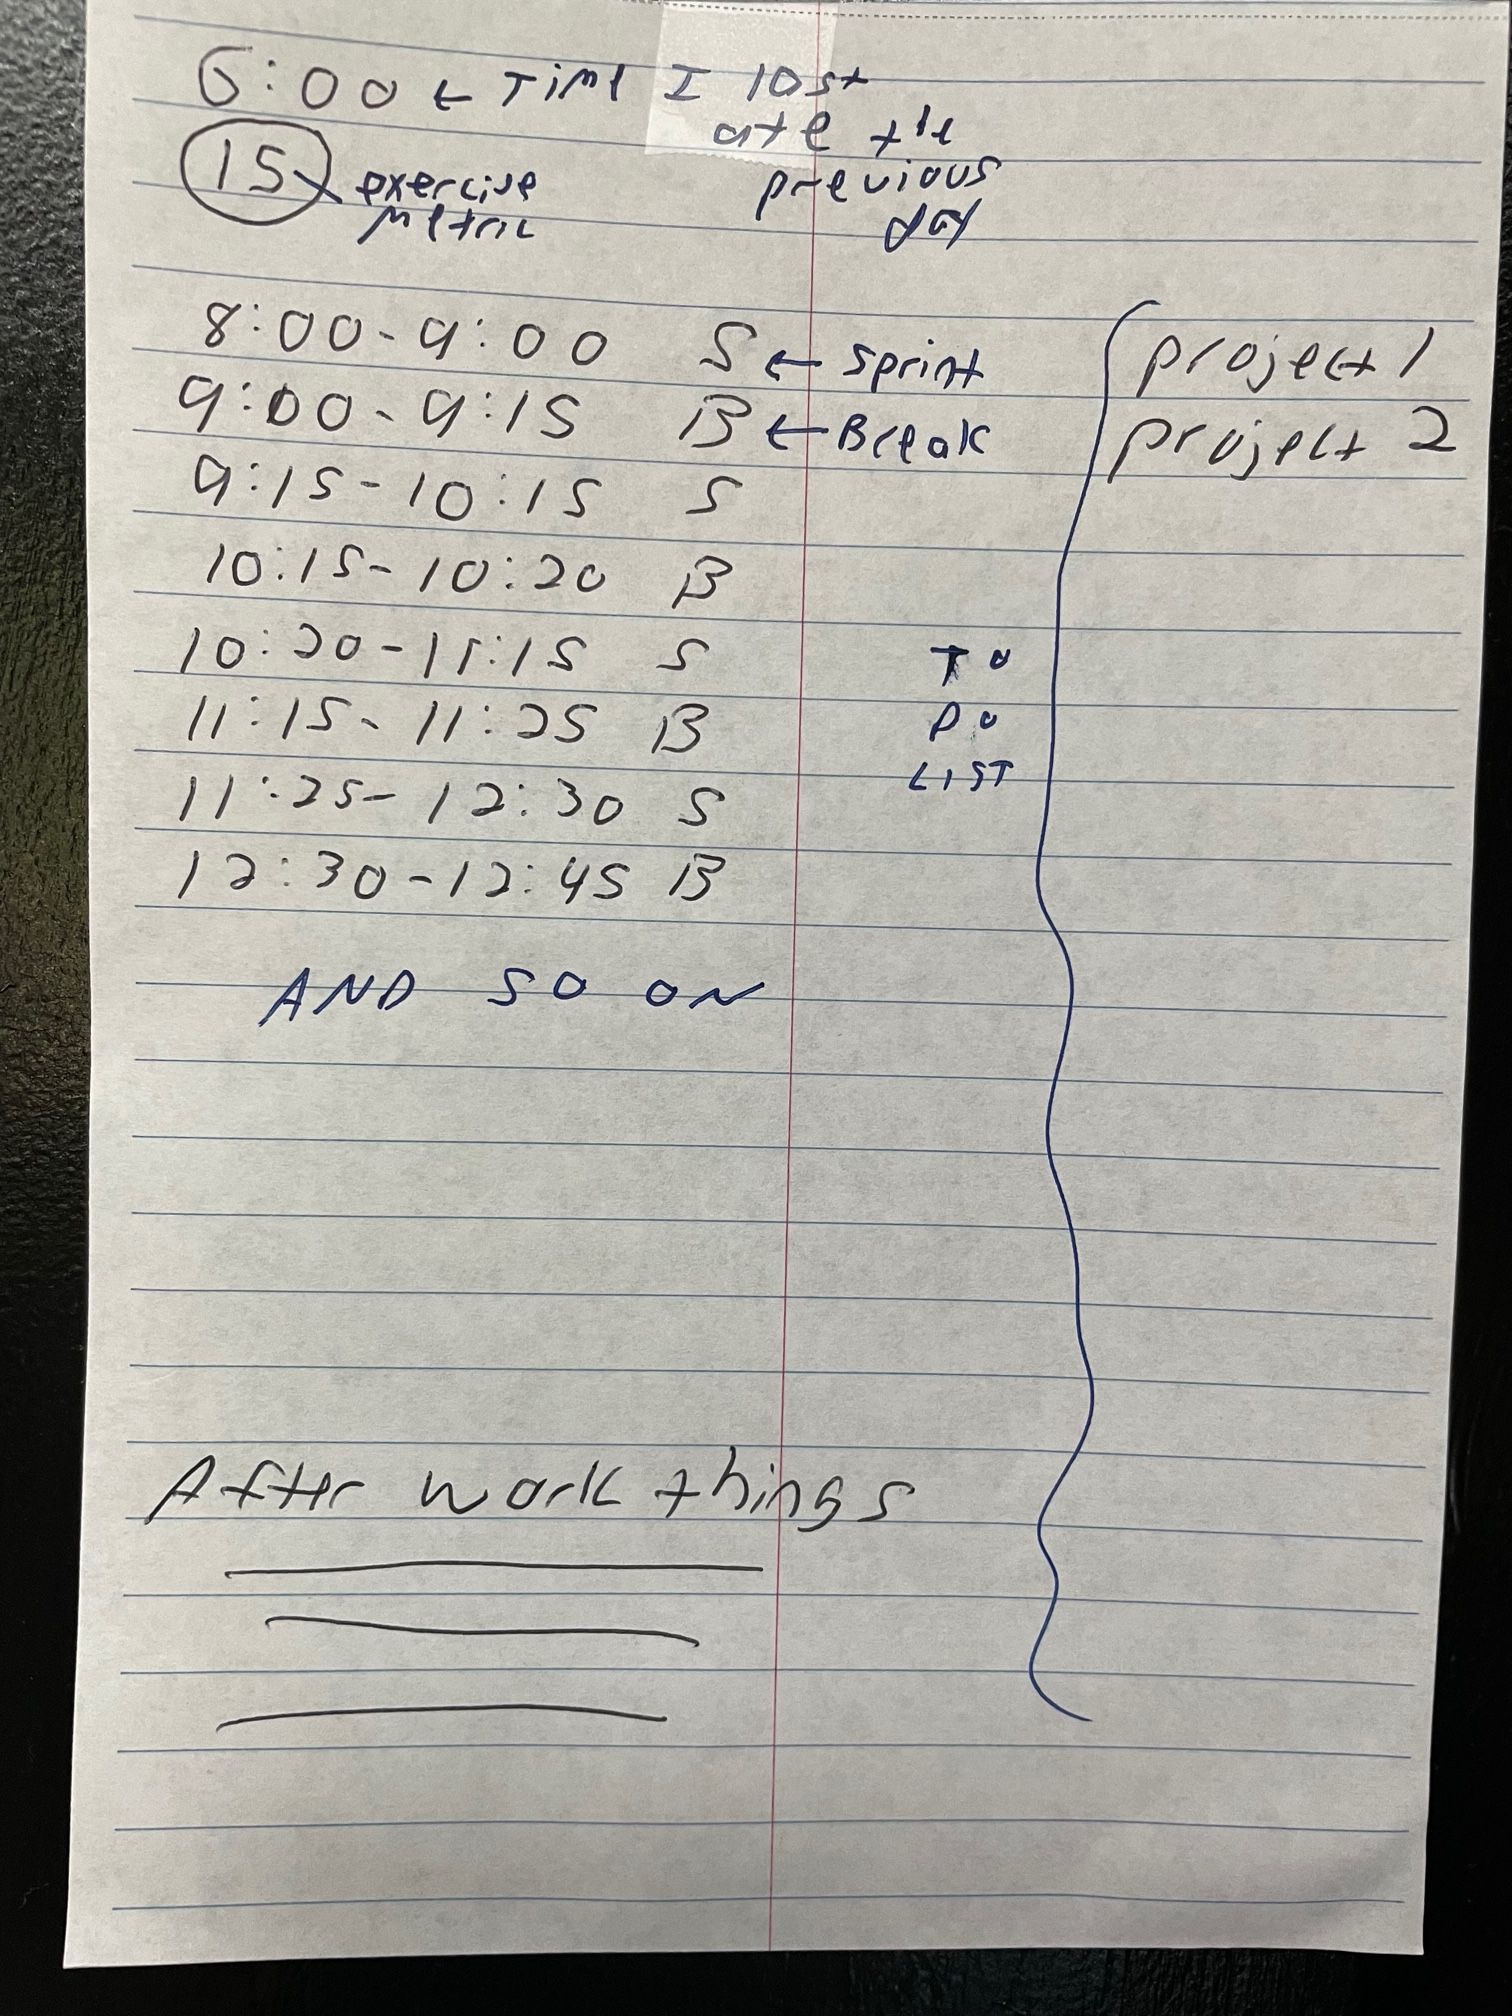 6:00 ← Time I last
ate the
previous
day
15 exercise
metric
8:00-9:00 S ← Sprint
9:00-9:15 B ← Break
9:15-10:15 S
10:15-10:20 B
10:20-11:15 S
11:15-11:25 B
11:25-12:30 S
12:30-12:45 B
AND SO ON
TO
DO
LIST
project 1
project 2
After work things